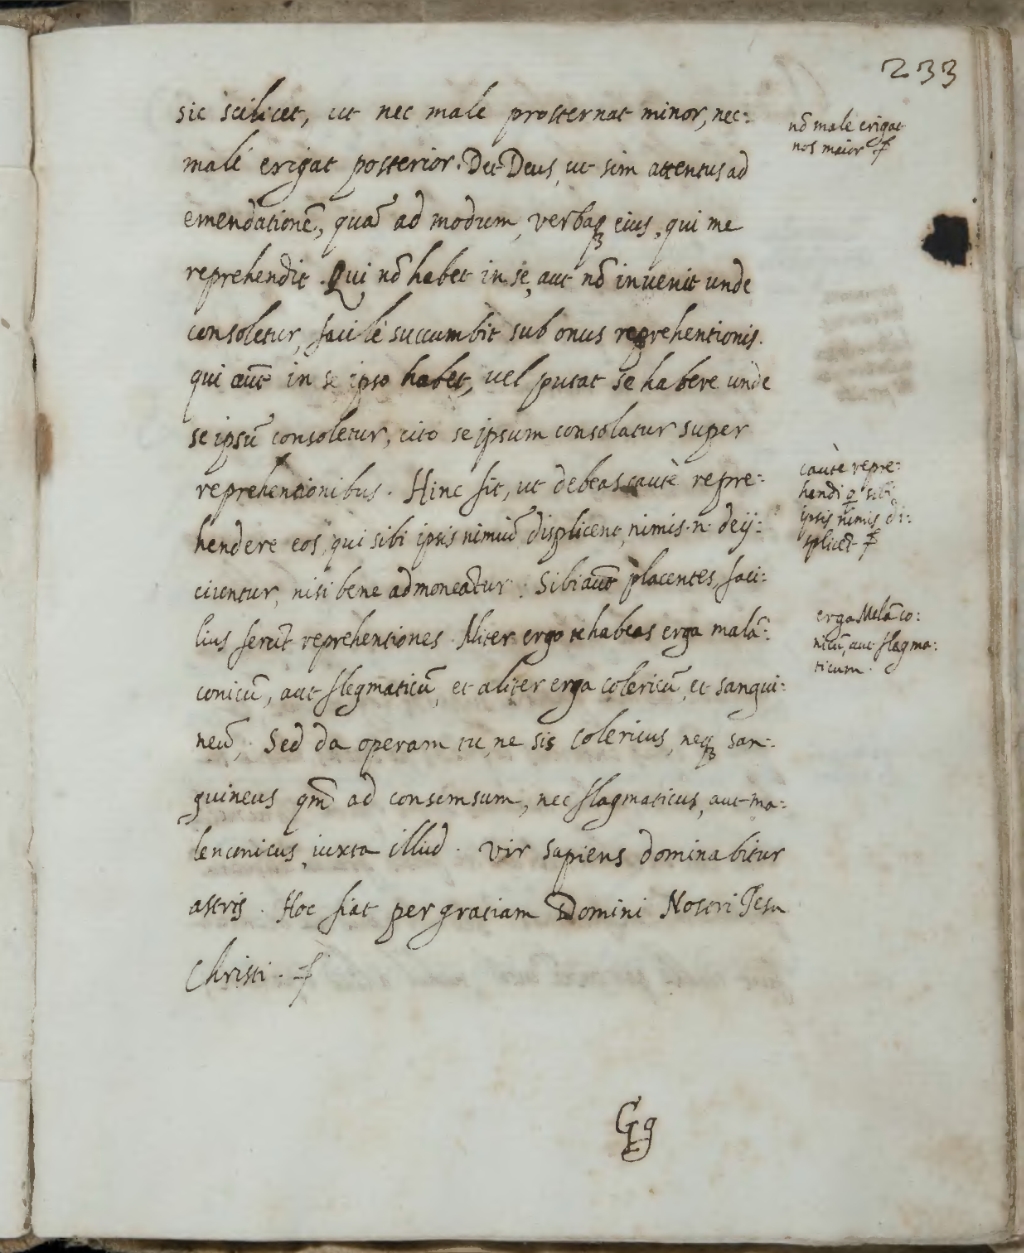 233
sic scilicet, ut nec male prosternat minor, nec-
male erigat posterior. Det Deus, ut sim attentus ad
emendationē, quā ad modum, verbaq; eius, qui me
reprehendit. Qui nō habet in se, aut nō invenit unde
consoletur, facile succumbit sub onus reprehentionis.
qui aūt in se ipso habet, vel putat se habere unde
se ipsū consoletur, cito se ipsum consolatur super
reprehentionibus. Hinc fit, ut debeas cautè repre-
hendere eos, qui sibi ipsis nimiū displicent, nimis .n. deij-
cientur, nisi bene admoneātur. Sibi aūt placentes, faci-
lius ferūt reprehentiones. Aliter ergo te habeas erga malā-
conicū, aut flegmaticū, et aliter erga colericū, et sangui-
neū. Sed da operam tu, ne sis colericus, neq; san-
guineus qm̄ ad consemsum, nec flagmaticus, aut ma-
lenconicus, iuxta illud. Vir sapiens dominabitur
astris. Hoc fiat per gratiam Domini Nostri Jesu
Christi.
nō male erigat
nos maior
caùte repre-
hendi q sibi
ipsis nimis di-
splicēt
erga Melāco-
nicū, aut flagma-
ticum.
Gg